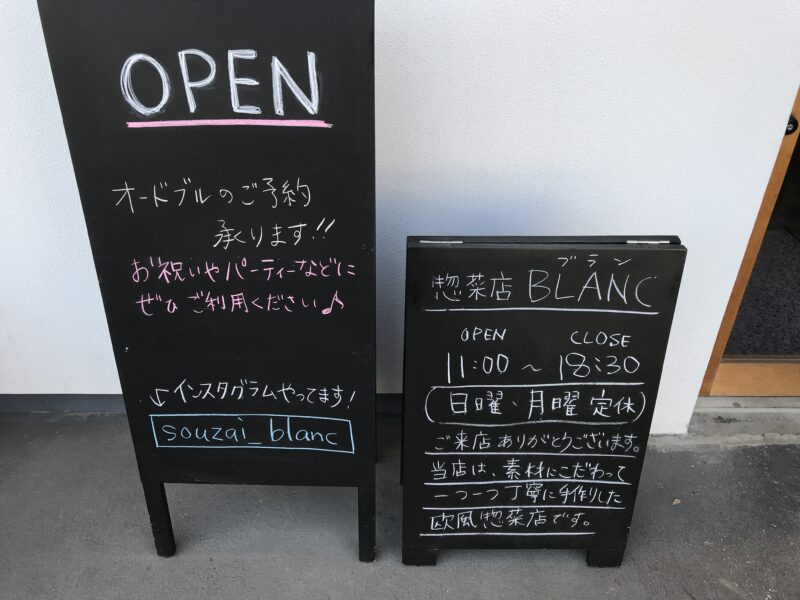 OPEN
オードブルのご予約
承ります!!
お祝いやパーティーなどに
ぜひご利用ください♪
↙インスタグラムやってます!
souzai_blanc
ブラン
惣菜店 BLANC
OPEN CLOSE
11:00 ~ 18:30
日曜、月曜 定休
ご来店ありがとうございます。
当店は、素材にこだわって
一つ一つ丁寧に手作りした
欧風惣菜店です。